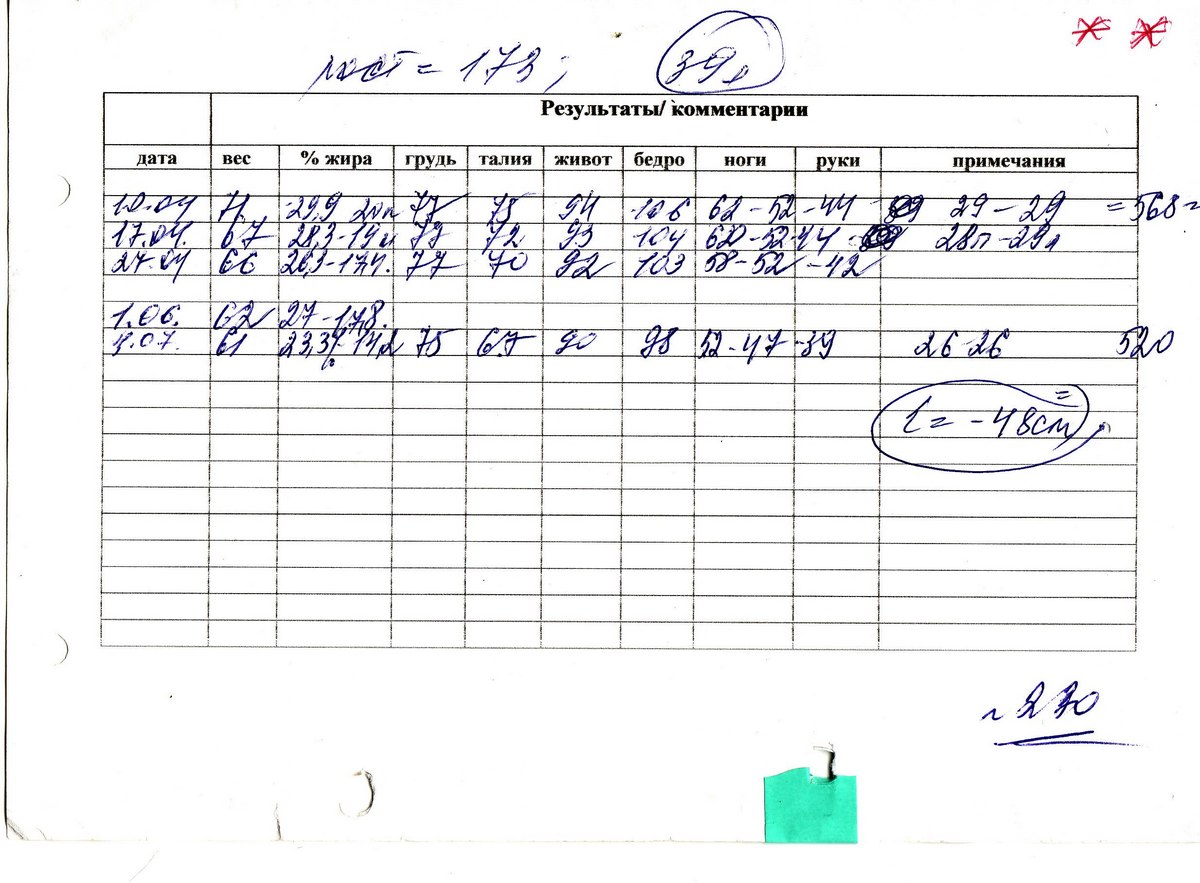 рост = 173; 39л
Результаты/ комментарии
дата вес % жира грудь талия живот бедро ноги руки примечания
10.04 71 29,9 20л 77 75 94 106 62-52-44 29-29 =568=
17.04. 67 28,3-19л 77 72 93 104 60-52-44 28п-29л
27.04 66 26,3-17,4. 77 70 92 103 58-52-42
1.06. 62 27-17,8.
61 23,3%-14,2 75 67 90 98 52-47-39 26-26 520
= -48см
270